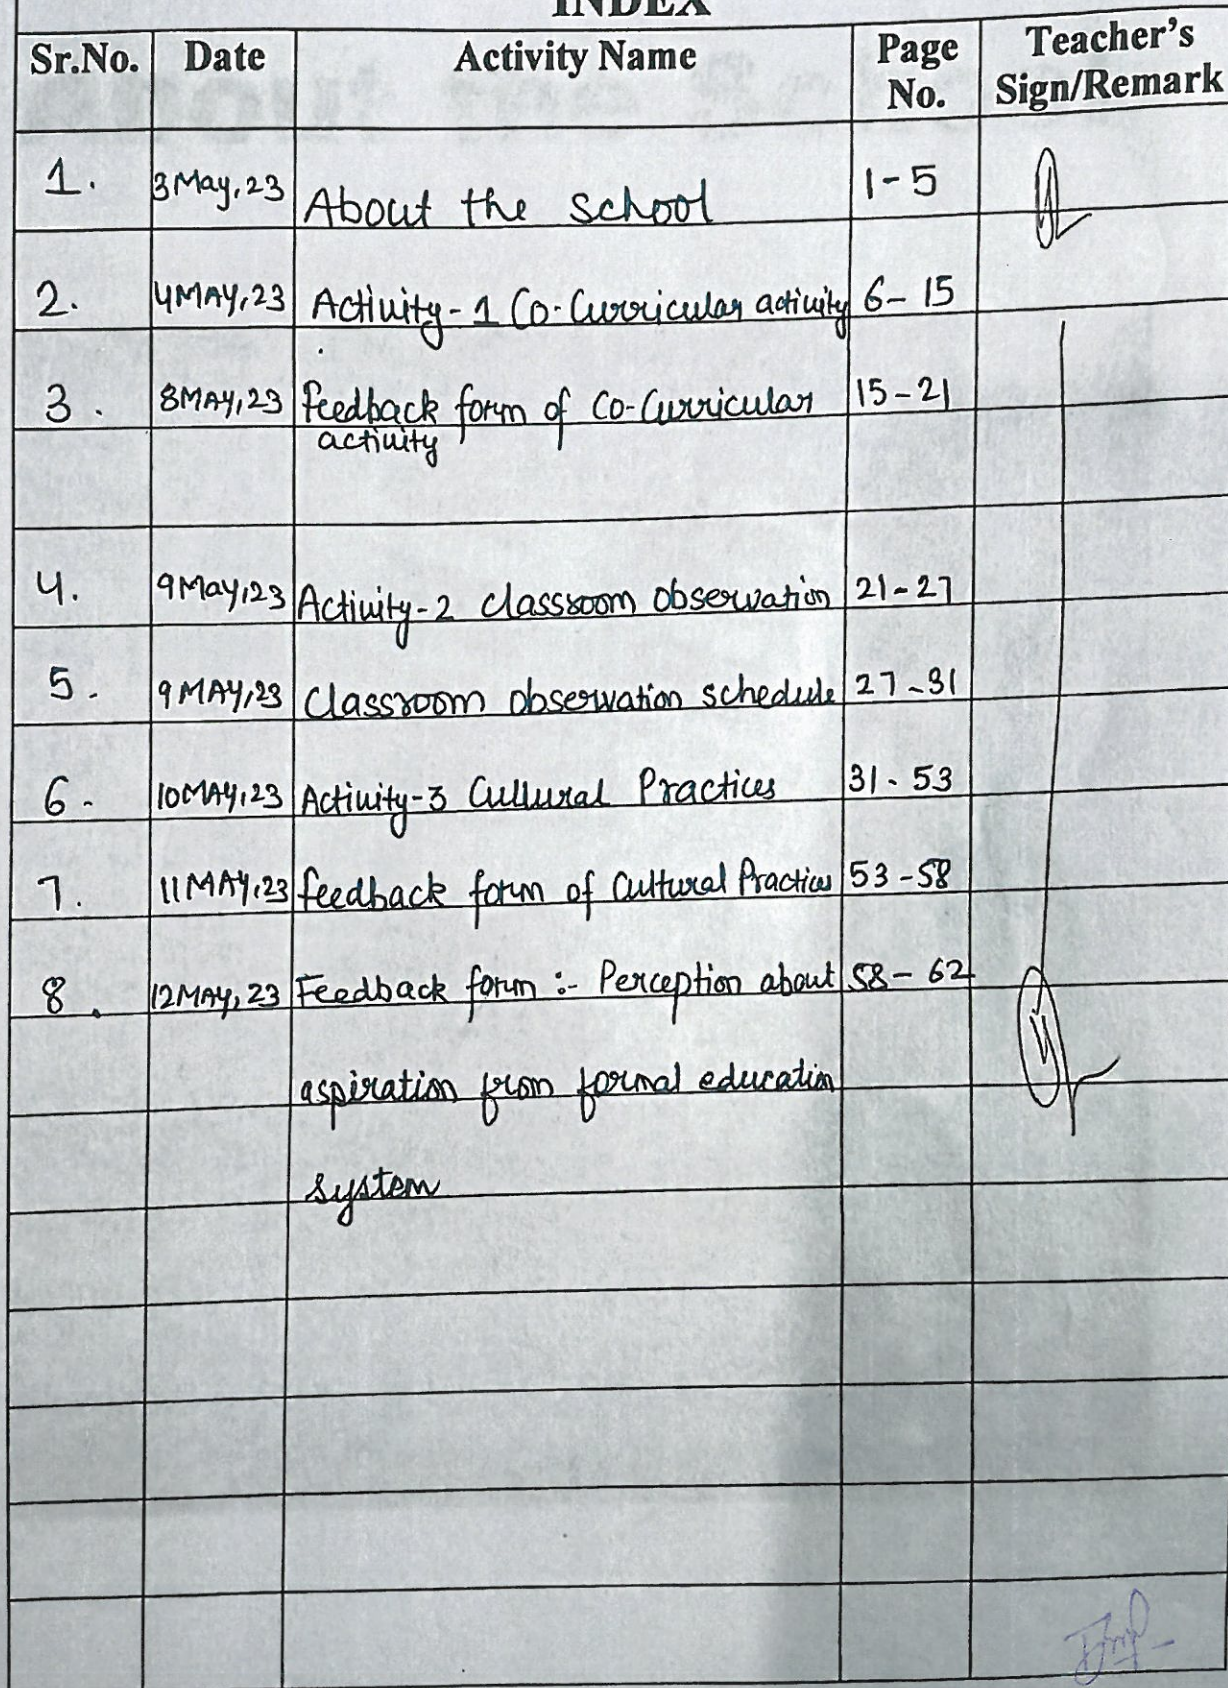 INDEX
Sr.No. Date Activity Name Page No. Teacher's Sign/Remark
1. 3 May, 23 About the school 1-5
2. 4 MAY, 23 Activity-1 Co-Curricular activity 6-15
3. 8 MAY, 23 feedback form of Co-Curricular 15-21
activity
4. 9 May, 23 Activity-2 classroom observation 21-27
5. 9 MAY, 23 Classroom observation schedule 27-31
6- 10 MAY, 23 Activity-3 Cultural Practices 31-53
7. 11 MAY, 23 feedback form of Cultural Practices 53-58
8. 12 MAY, 23 Feedback form :- Perception about 58-62
aspiration from formal education
system